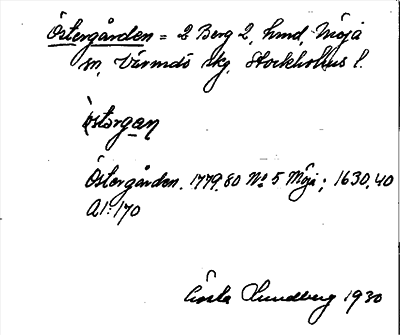 Östergården = 2 Berg 2, hmd, Möja
sn, Värmdö skg, Stockholms l.
östərgan
Östergården. 1779.80 No 5 Möja; 1630,40
A1:170
Gösta Lundberg 1930